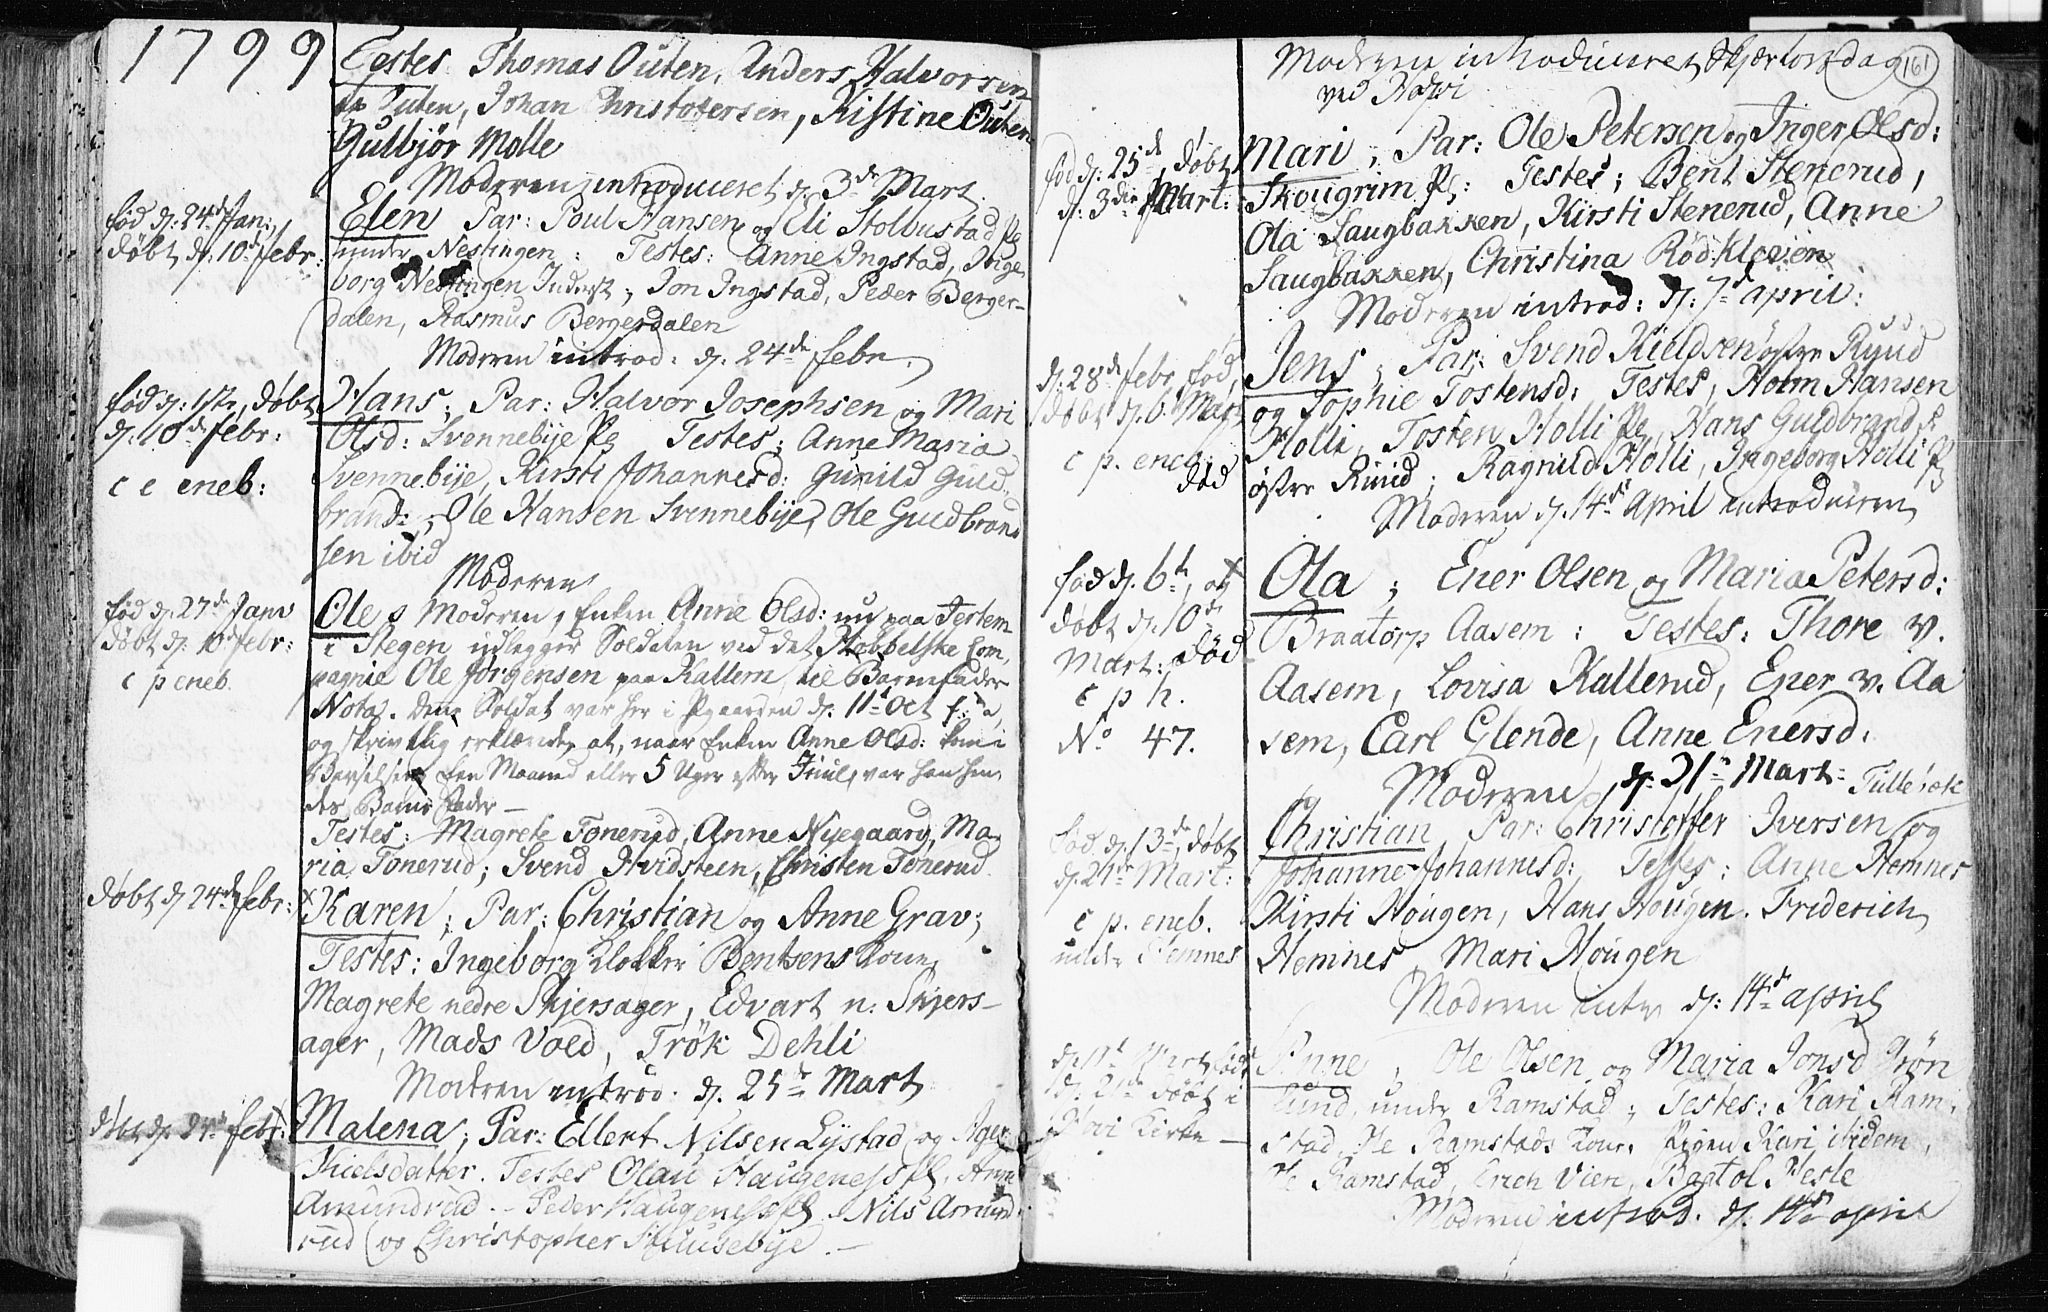 1799
Testes Thomas Outen, Anders Halvorsen
Outen, Johan Christofersen, Kistine Outen
Gulbjör Molle
Moderen introduceret d. 3de Mart
fød d. 24d Jan:
døbt d. 10d febr:
Elen Par: Poul Hansen og Eli Stolbustad Pg
under Nestingen: Testes: Anne Ingstad, Inge
borg Nestingen Inderst; Jon Ingstad, Peder Berger-
dalen, Rasmus Bergerdalen
Moderen introd: d. 24de febr.
fød d: 1ste, døbt
d. 10d febr:
c e eneb:
Hans; Par: Halvor Josephsen og Mari
Olsd: Svennebye Pg Testes; Anne Maria
Svennebye, Kirsti Johannesd: Gunild Guld
brand:, Ole Hansen Svennebye, Ole Guldbrand
sen ibid
Moderen
fød d. 27de Janv
døbt d. 10d febr:
c p eneb.
Ole; Moderen, Enken Anne Olsd: nu paa
i Stegen udlegger Soldaten ved det Com
pagnie Ole Jørgensen paa Kallem til Barnefader
Nota. Denne Soldat var her i Pgaarden d. 11te Oct
og skrivtlig erklærede, at, naar Enken Anne Olsd: kom i
Barselseng Een Maaned eller 5 Uger efter Juul, var han hen
des Barne Fader —
Testes: Magrete Tonerud, Anne Nyegaard, Ma
ria Tonerud; Svend Hvidsteen, Christen Tonerud
døbt d 24de febr:
Karen; Par: Christian og Anne Grav;
Testes: Ingeborg Klokker Bentsens Kone,
Magrete nedre Skjersager, Edvart n: Skjers-
ager, Mads Voed, Trök Dehli
Moderen introd: d. 25de Mart
febr:
Malena; Par: Ellert Nilsen Lystad og
Kielsdatter. Testes Olau Haugeness, Anne
Amundrud - Peder Haugeness - Nils Amund
rud og Christopher Stuusebye. —
161
Moderen introduceret Skjærtorsdag
ved Høfvi
fød d. 25d, døbt
d. 3die Mart:
Mari, Par: Ole Petersen og Inger Olsd:
Skougrim Pg: Testes; Bent Stenerud,
Ola Saugbakken, Kirsti Stenerud, Anne
Saugbakken, Christina Rödkleven
Moderen introd: d: 7d april:
d. 28d febr fød,
døbt d. 6 Mart
c p. eneb:
død
Jens, Par: Svend Kieldsen østre Ruud
og Sophie Tostensd: Testes, Holm Hansen
Holli, Tosten Holli Pg, Hans Guldbrands
østre Ruud; Ragnild Holli, Ingeborg Holli Pg
Moderen d. 14de April introduceren
fød d. 6te, og
døbt d. 10de
Mart: død
c p h.
No 47.
Ola; Ener Olsen og Maria Petersd:
Braatorp Aasem: Testes: Thore v.
Aasem, Lovisa Kullerud, Ener v. Aa
sem, Carl Glende, Anne Enersd.
Moderen d. 31te Mart:
fød d. 13de, døbt
d. 21de Mart:
c p. eneb.
under Hemnes
Christian Par: Christoffer Iversen og
Johanne Johannesd: Testes: Anne Hemnes
Kirsti Hougen, Hans Hougen. Friderich
Hemnes Mari Hougen
Moderen intr d: 14de april
d. Mart født
d. 21de døbt i
Høvi Kirke —
Anne, Ole Olsen og Maria Jonsd Trön
lund, under Ramstad; Testes: Kari Ram
stad, Ole Ramstads Kone, Pigen Kari ibidem,
Ole Ramstad, Erich Vien, Bartol Hesle
Moderen introd. d: 14de april